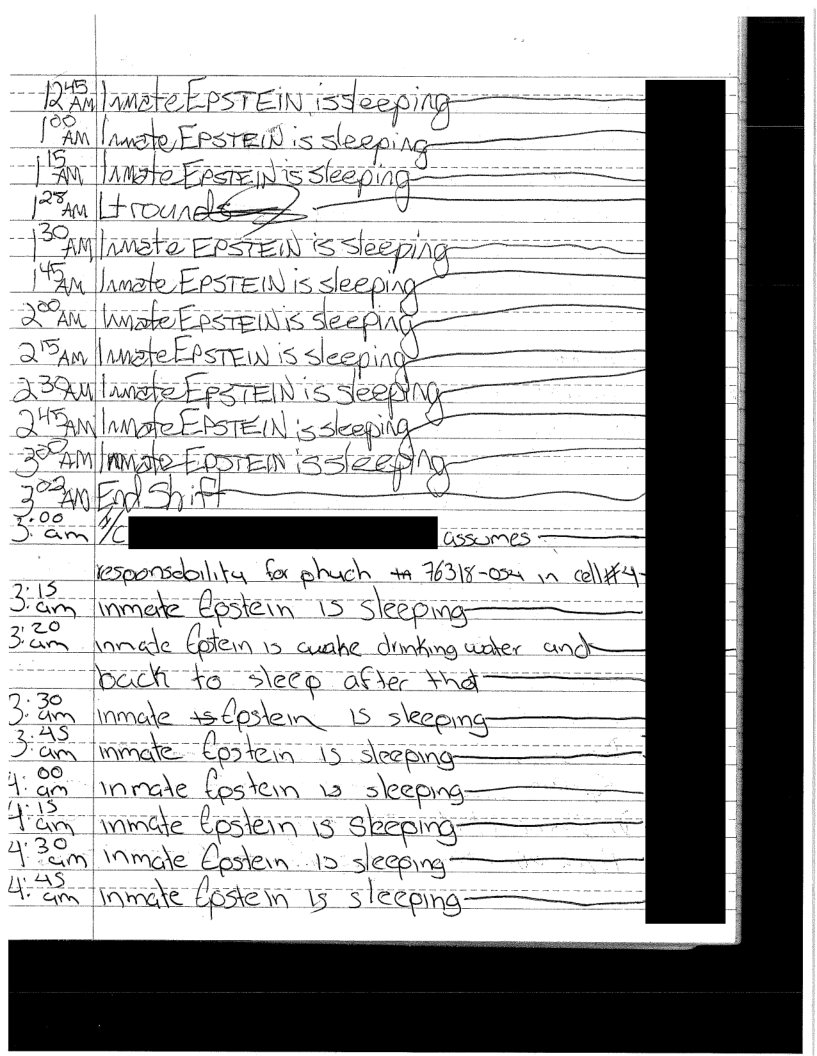 12 45 AM Inmate EPSTEIN is sleeping
1 00 AM Inmate EPSTEIN is sleeping
1 15 AM Inmate EPSTEIN is sleeping
1 28 AM Lt rounds
1 30 AM Inmate EPSTEIN is sleeping
1 45 AM Inmate EPSTEIN is sleeping
2 00 AM Inmate EPSTEIN is sleeping
2 15 AM Inmate EPSTEIN is sleeping
2 30 AM Inmate EPSTEIN is sleeping
2 45 AM Inmate EPSTEIN is sleeping
3 00 AM Inmate EPSTEIN is sleeping
3 02 AM End Shift
3:00 am I/C assumes
responsebility for phuch # 76318-054 in cell#4
3:15 am inmate Epstein is sleeping
3:20 am inmate Eptein is awake drinking water and
back to sleep after that
3:30 am inmate Epstein is sleeping
3:45 am inmate Epstein is sleeping
4:00 am inmate Epstein is sleeping
4:15 am inmate Epstein is sleeping
4:30 am inmate Epstein is sleeping
4:45 am inmate Epstein is sleeping